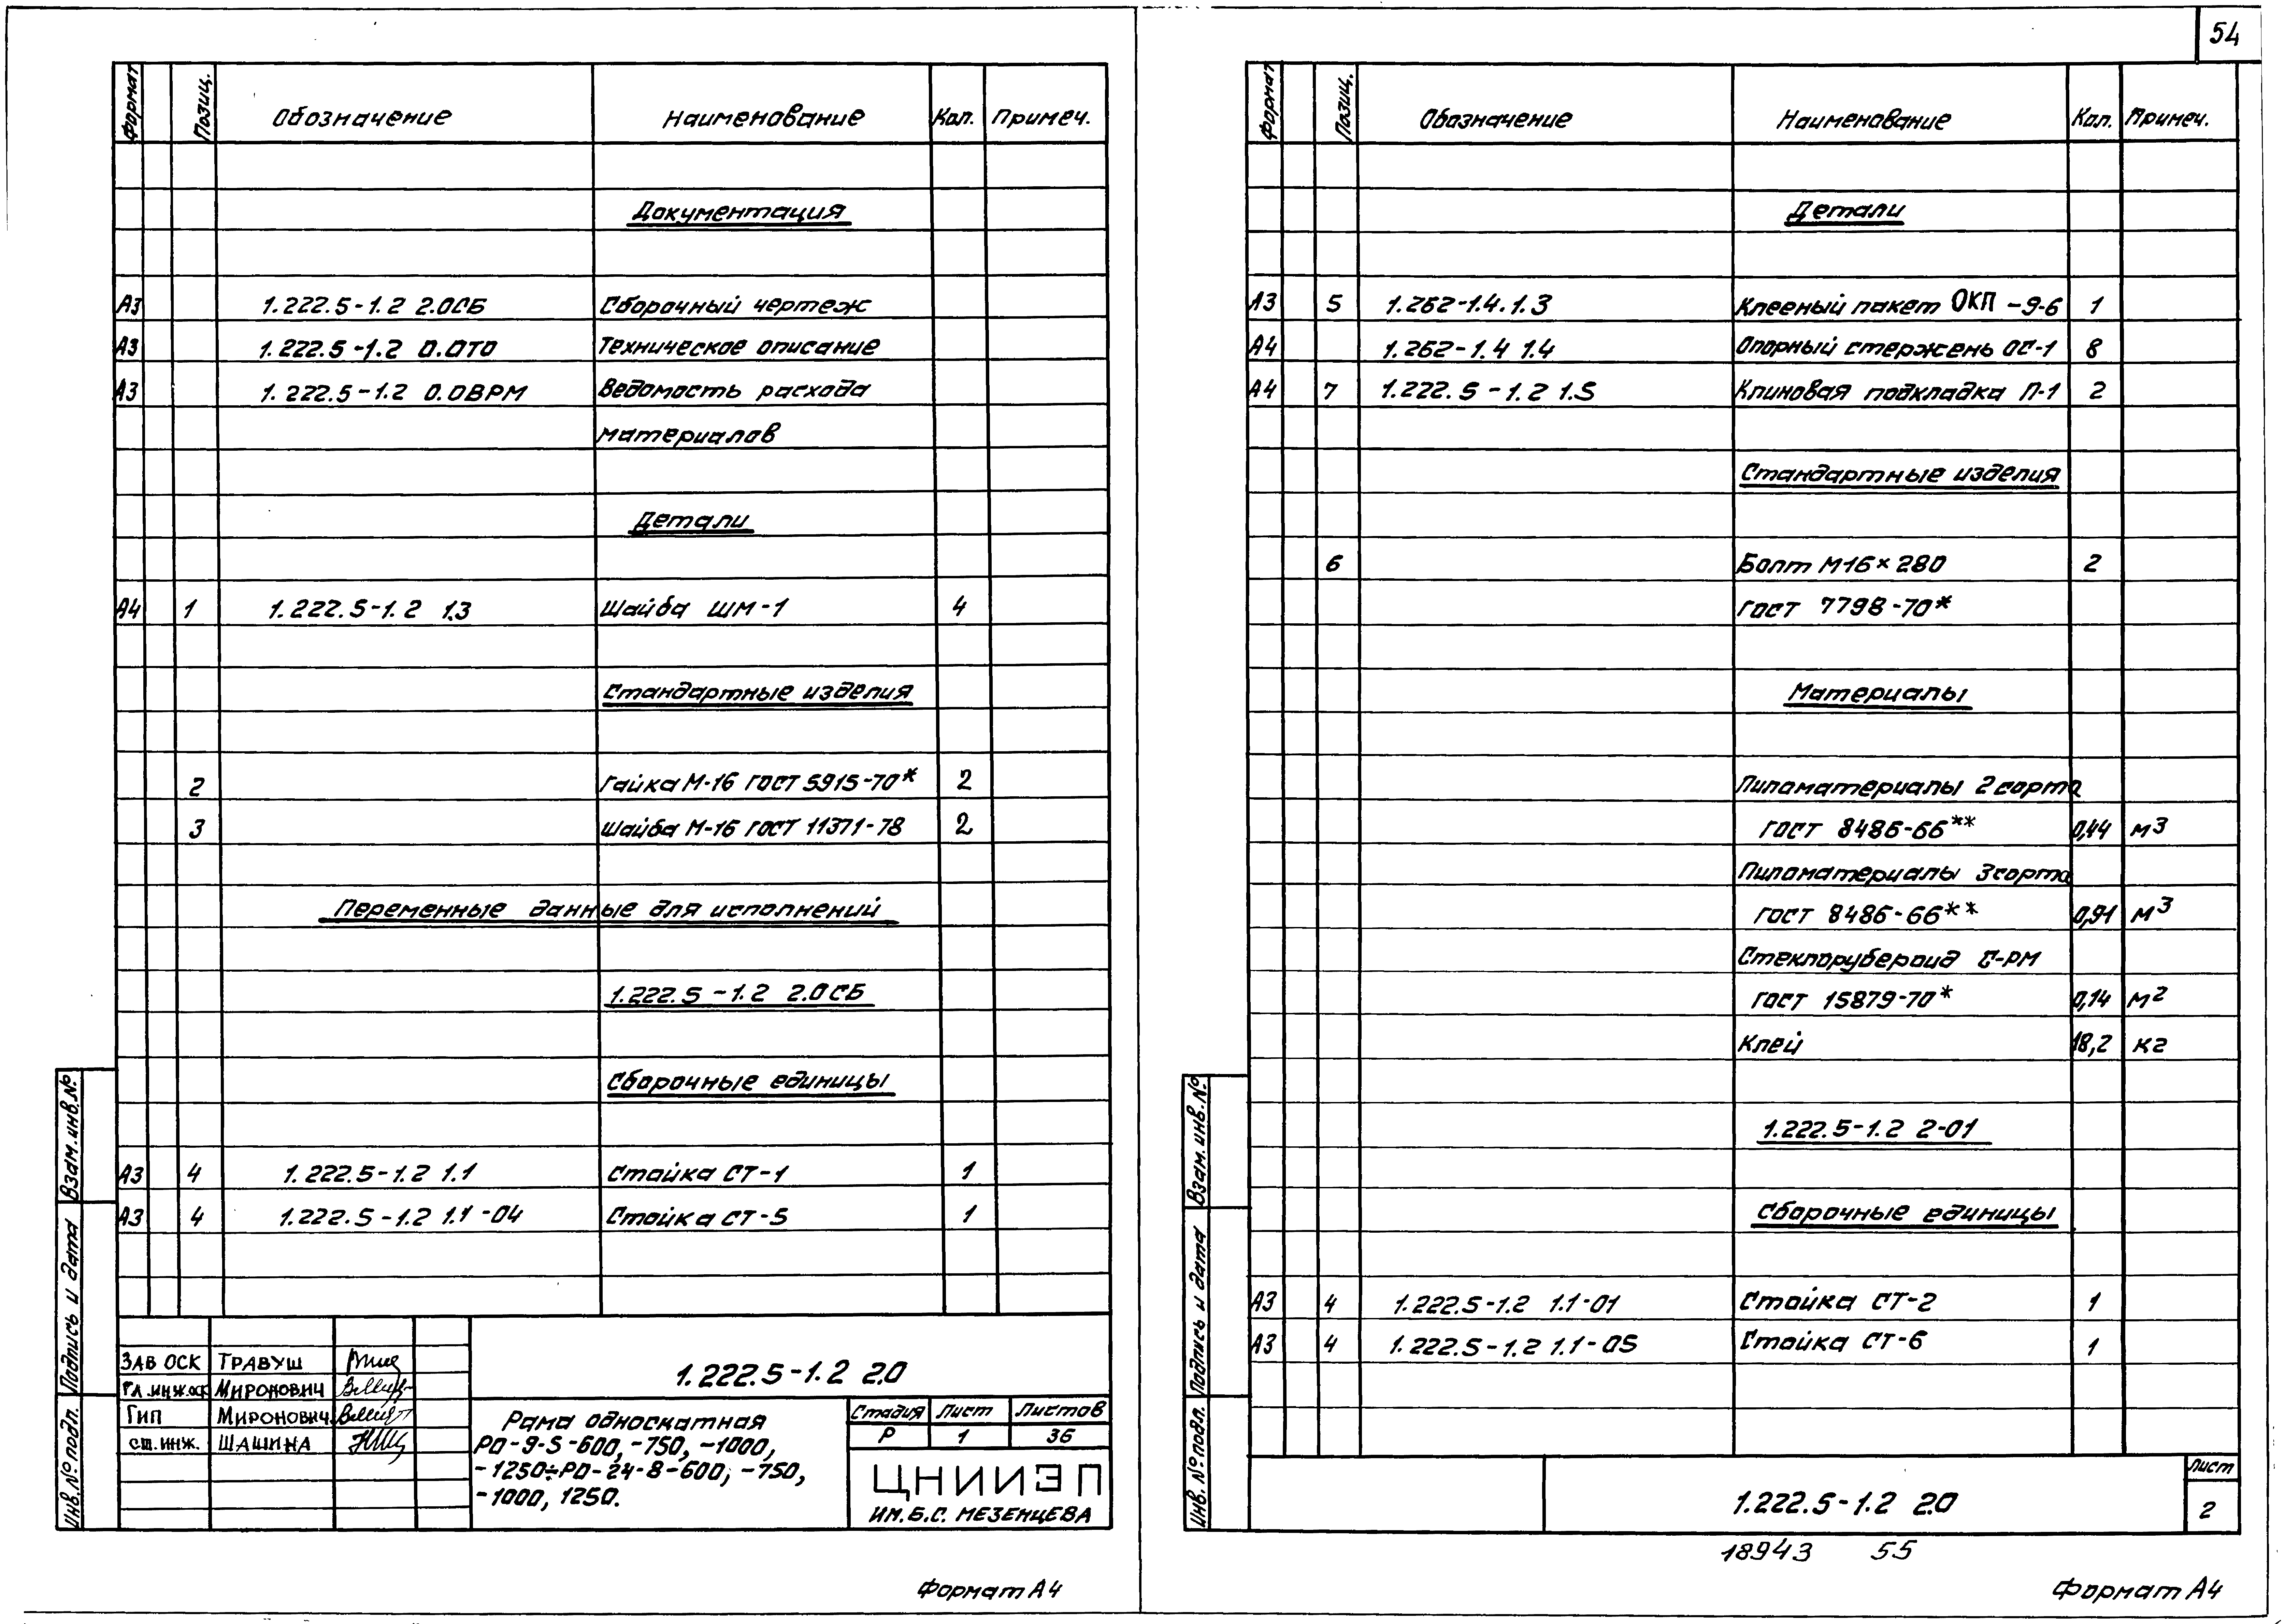 54
Формат Позиц. Обозначение Наименование Кол. Примеч.
Документация
А3 1.222.5-1.2 2.0СБ Сборочный чертеж
А3 1.222.5-1.2 0.0ТО Техническое описание
А3 1.222.5-1.2 0.0ВРМ Ведомость расхода
материалов
Детали
А4 1 1.222.5-1.2 1.3 Шайба ШМ-1 4
Стандартные изделия
2 Гайка М-16 ГОСТ 5915-70* 2
3 Шайба М-16 ГОСТ 11371-78 2
Переменные данные для исполнений
1.222.5-1.2 2.0СБ
Сборочные единицы
А3 4 1.222.5-1.2 1.1 Стойка СТ-1 1
А3 4 1.222.5-1.2 1.1-04 Стойка СТ-5 1
Взам. инв. №
Подпись и дата
Инв. № подл.
Зав ОСК Травуш
Гл.инж.оск Миронович
Гип Миронович
ст. инж. Шашина
1.222.5-1.2 2.0
Рама односкатная
РО-9-5-600, -750, -1000,
-1250÷РО-24-8-600, -750,
-1000, 1250.
Стадия Лист Листов
Р 1 36
ЦНИИЭП
ИМ. Б.С. МЕЗЕНЦЕВА
Формат А4
Формат Позиц. Обозначение Наименование Кол. Примеч.
Детали
А3 5 1.262-1.4.1.3 Клееный пакет ОКП-9-6 1
А4 1.262-1.4 1.4 Опорный стержень ОС-1 8
А4 7 1.222.5-1.2 1.5 Клиновая подкладка П-1 2
Стандартные изделия
6 Болт М-16×280 2
ГОСТ 7798-70*
Материалы
Пиломатериалы 2 сорта
ГОСТ 8486-66** 0,44 м3
Пиломатериалы 3 сорта
ГОСТ 8486-66** 0,91 м3
Стеклорубероид С-РМ
ГОСТ 15879-70* 0,14 м2
Клей 18,2 кг
1.222.5-1.2 2-01
Сборочные единицы
А3 4 1.222.5-1.2 1.1-01 Стойка СТ-2 1
А3 4 1.222.5-1.2 1.1-05 Стойка СТ-6 1
Взам. инв. №
Подпись и дата
Инв. № подл.
1.222.5-1.2 2.0
Лист
2
18943 55
Формат А4